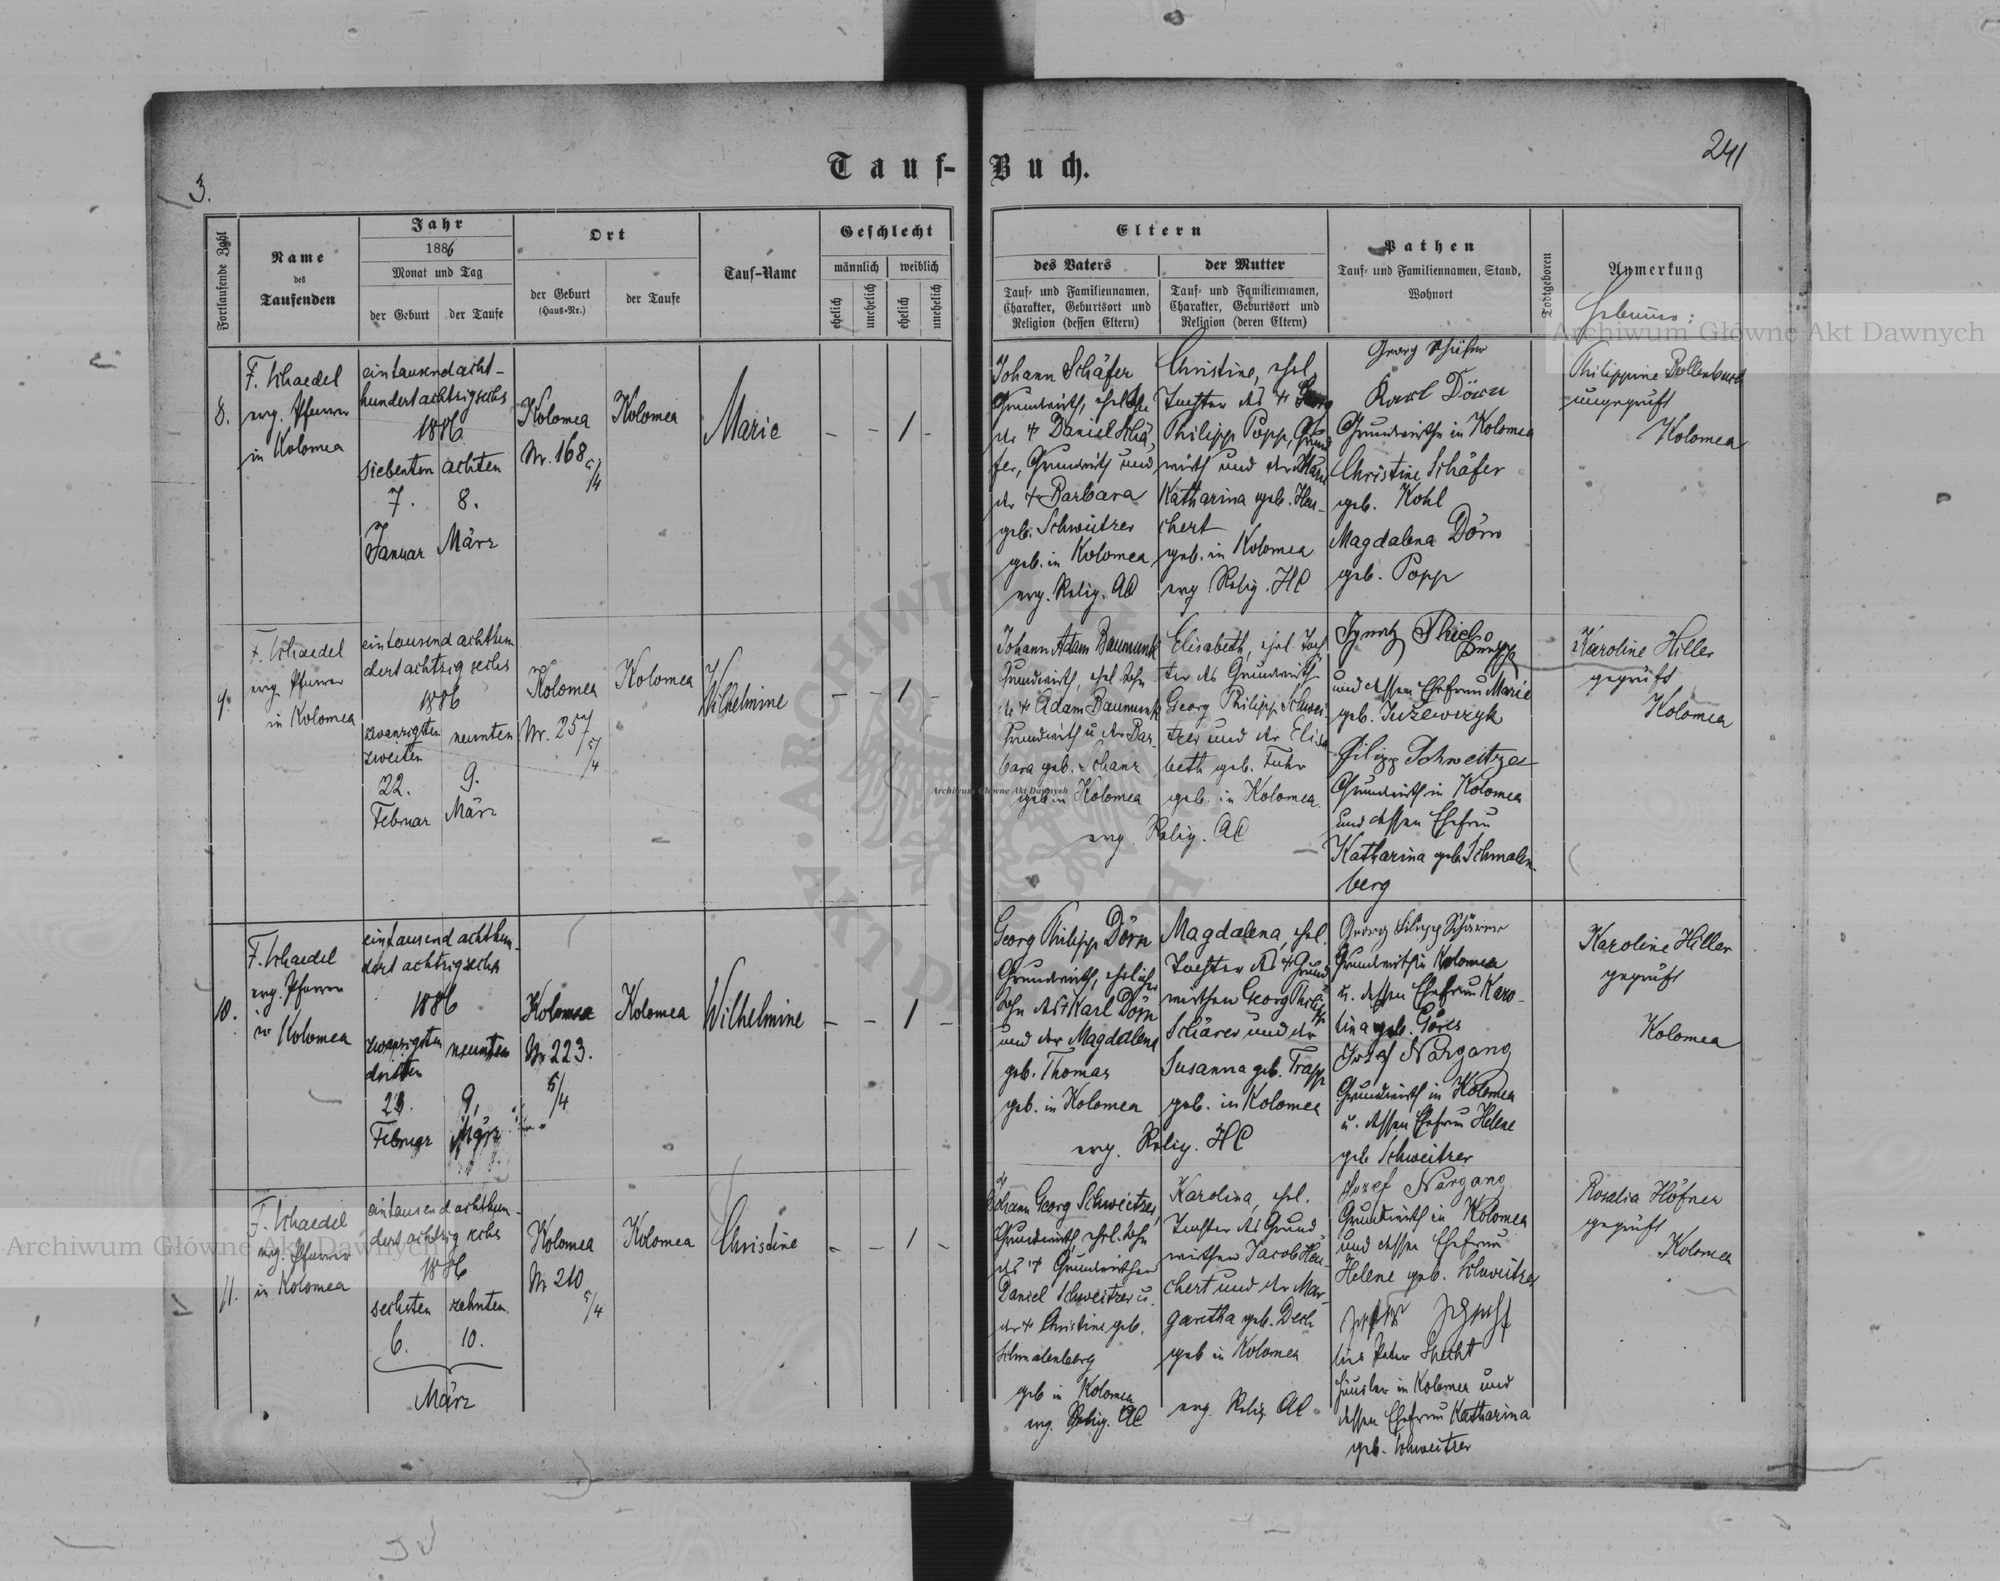 3.
241
Tauf-Buch.
Fortlaufende Zahl
Name
des
Taufenden
Jahr
1886
Monat und Tag
der Geburt
der Taufe
Ort
der Geburt
(Haus-Nr.)
der Taufe
Tauf-Name
Geschlecht
männlich
weiblich
ehelich
unehelich
ehelich
unehelich
Eltern
des Vaters
Tauf- und Familiennamen,
Charakter, Geburtsort und
Religion (dessen Eltern)
der Mutter
Tauf- und Familiennamen,
Charakter, Geburtsort und
Religion (deren Eltern)
Pathen
Tauf- und Familiennamen, Stand,
Wohnort
Todtgeboren
Anmerkung
Hebamme:
8.
F. Schaedel
evg. Pfarrer
in Kolomea
eintausendacht-
hundertachtzigsechs
1886
siebenten achten
7. 8.
Januar März
Kolomea
Nr. 168
5/4
Kolomea
Marie
– – 1 –
Johann Schäfer
Grundwirth, ehel. Sohn
des + Daniel Schä-
fer, Grundwirth und
der + Barbara
geb. Schweitzer
geb. in Kolomea
evg. Relig. AC
Christine, ehel.
Tochter des +
Philipp Popp, Grund
wirth und der
Katharina geb. Heu-
chert
geb. in Kolomea
evg. Relig. HC
Georg Schäfer
Karl Dörn
Grundwirthe in Kolomea
Christine Schäfer
geb. Kohl
Magdalena Dörn
geb. Popp
Philippine
ungeprüft
Kolomea
9.
F. Schaedel
evg Pfarrer
in Kolomea
eintausend achthun
dertachtzig sechs
1886
zwanzigsten neunten
zweiten
22. 9.
Februar März
Kolomea
Nr. 257
5/4
Kolomea
Wilhelmine
– – 1 –
Johann Adam Baumunk
Grundwirth, ehel Sohn
des + Adam Baumunk
Grundwirth u. der Bar-
bara geb. Schanz
geb in Kolomea
Elisabeth, ehel. Toch
ter des Grundwirth
Georg Philipp Schwei-
tzer und der Elisa
beth geb. Fuhr
geb. in Kolomea.
evg. Relig. AC
Ignatz
und dessen Ehefrau Marie
geb.
Filipp Schweitzer
Grundwirth in Kolomea
und dessen Ehefrau
Katharina geb. Schmalen-
berg
Karoline Hiller
geprüft
Kolomea
10.
F. Schaedel
evg. Pfarrer
in Kolomea
eintausend achthun-
dert achtzigsechs
1886
zwanzigsten neunten
dritten
23. 9.
Februar März
Kolomea
Nr 223.
5/4
Kolomea
Wilhelmine
– – 1 –
Georg Philipp Dörn
Grundwirth, ehelicher
Sohn des + Karl Dörn
und der Magdalena
geb. Thomas
geb. in Kolomea
Magdalena, ehel.
Tochter des + Grund
wirthen Georg Philipp
Schärer und der
Susanna geb. Trapp
geb. in Kolomea
evg. Relig. HC
Georg Filipp Schärer
Grundwirth in Kolomea
u. dessen Ehefrau Karo-
lina geb. Göres
Josef Nargang
Grundwirth in Kolomea
u. dessen Ehefrau Helene
geb Schweitzer
Karoline Hiller
geprüft
Kolomea
11.
F. Schaedel
evg. Pfarrer
in Kolomea
eintausend achthun-
dert achtzig sechs
1886
sechsten zehnten
6. 10.
März
Kolomea
Nr 210
5/4
Kolomea
Christine
– – 1 –
Johann Georg Schweitzer,
Grundwirth, ehel. Sohn
des + Grundwirthen
Daniel Schweitzer u.
der + Christine geb.
Schmalenberg
geb in Kolomea
evg. Relig. AC
Karolina, ehel.
Tochter des Grund-
wirthen Jacob Heu-
chert und der Mar-
garetha geb. Desch
geb in Kolomea
evg. Relig. AC
Josef Nargang
Grundwirth in Kolomea
und dessen Ehefrau
Helene geb. Schweitzer
Peter Specht
Häusler in Kolomea und
dessen Ehefrau Katharina
geb. Schweitzer
Rosalia Höfner
geprüft
Kolomea
Archiwum Główne Akt Dawnych
Archiwum Główne Akt Dawnych
Archiwum Główne Akt Dawnych